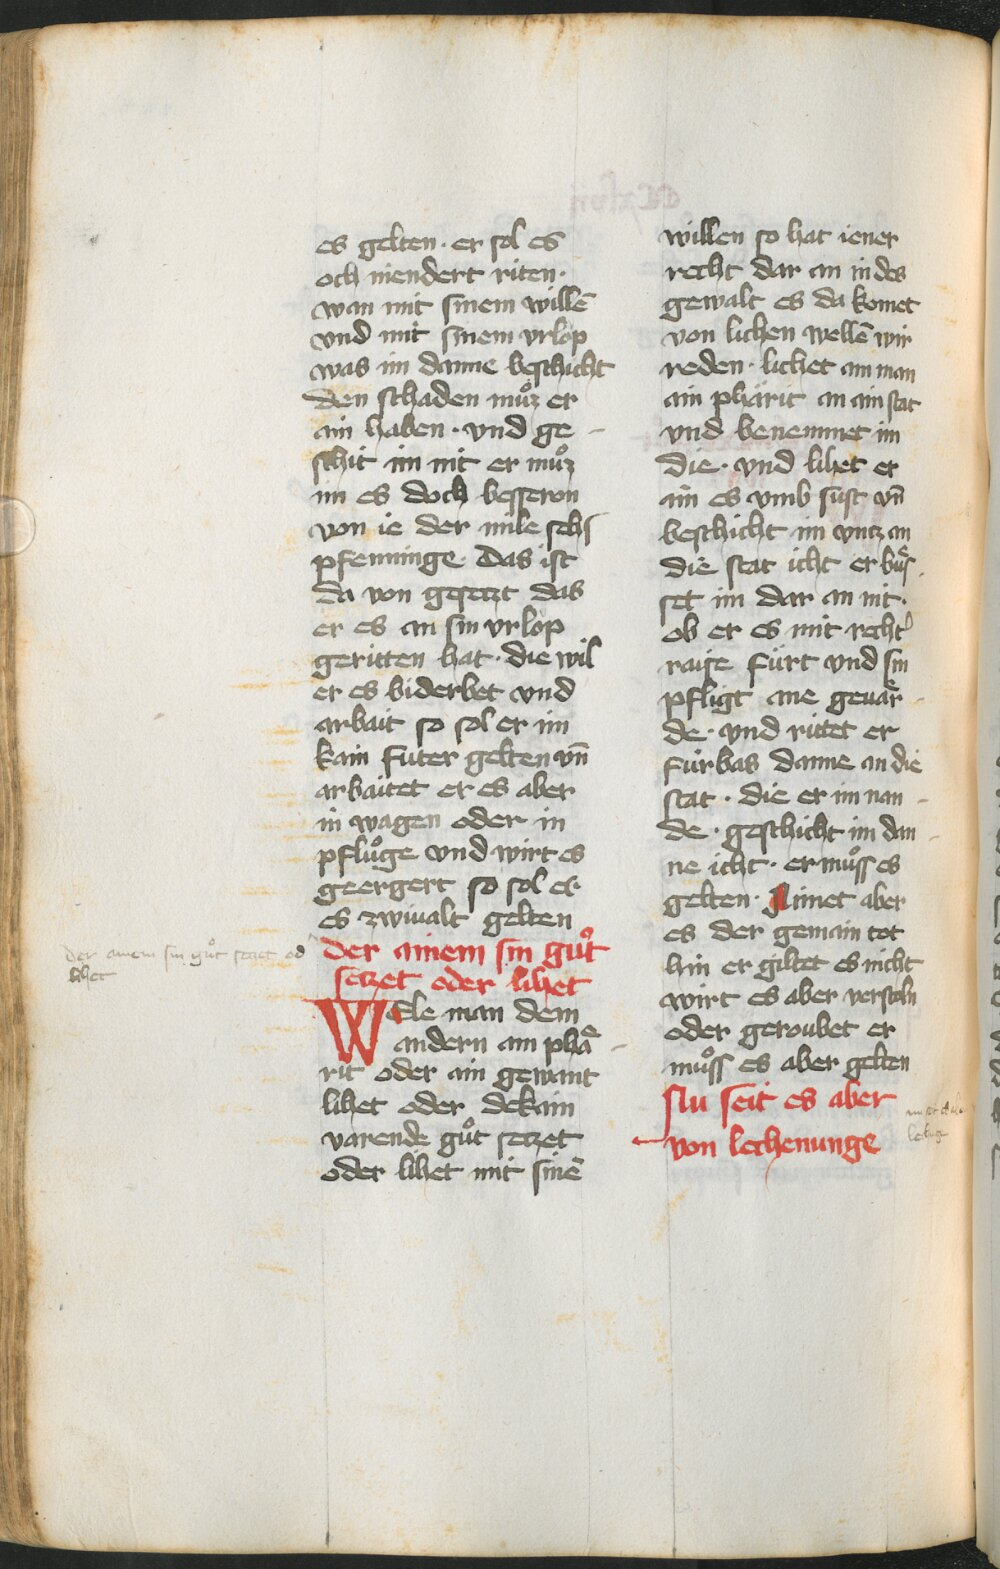 es gelten · er sol es
och niendert riten ·
wan mit sinem willē
vnd mit sinem vrlop
was im danne beschicht
den schaden muͦz er
ain haben · vnd ge
schit im nit er muͦz
im es doch besseron
von ie der mile sehs
pfenninge · Das ist
da von gesetzt das
er es an sin vrlop
geritten hat · die wil
er es biderbet vnd
arbait so sol er im
kain futer gelten vn̄
arbaitet er es aber
in wagen oder in
pfluͦge vnd wirt es
geergert so sol es
es zwiualt gelten
der ainem sin guͦt
setzet oder lihet
Wele man dem
andern ain phaͤ
rit oder ain gewant
lihet oder dekain
varende guͦt setzet
oder lihet mit sinē
willen so hat iener
recht dar an in des
gewalt es da komet
von lichen wellē wir
reden · lichet ain man
ain phärit an ain stat
vnd benemmet im
die · vnd lihet er
im es vmb sust vn̄
beschicht im vntz an
die stat icht er buͤs
set im dar an nit ·
ob er es mit rechtʼ
raise fürt vnd sin
pfligt ane geuaͤr
de · vnd rittet er
fürbas danne an die
stat · die er im nan
de · geschicht im dan
ne icht · er muͦss es
gelten · Nimet aber
es der gemain tot
hin er giltet es nicht
wirt es aber verstoln
oder geroubet er
muͦss es aber gelten
Nu seit es aber
von lechenunge
der ainem sin guͦt setzet od
lihet